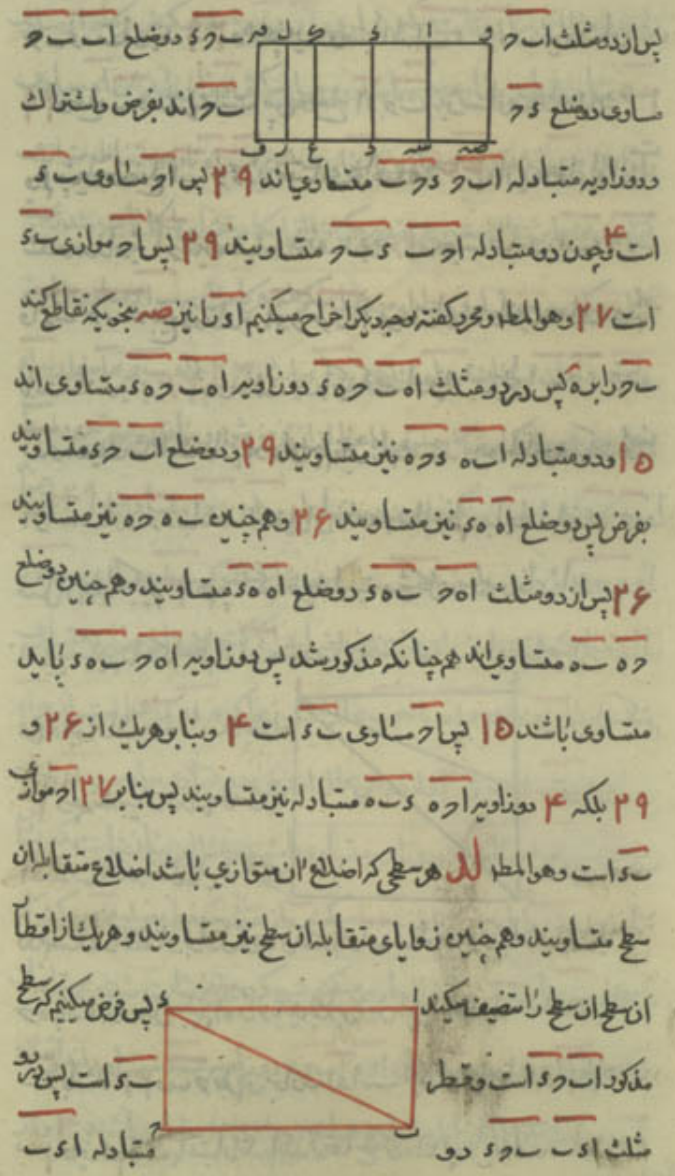 پس از دو مثلث اب ح ب ح ء دو ضلع اب ب ح
مساوی دو ضلع ء ح ب ح اند بفرض و اشتراک
و دو زاویه متبادله اب ح ء ح ب متساوی اند ۲۹ پس اح مساوی ب ء
است ۴ و چون دو متبادله اح ب ء ب ح متساویند ۲۹ پس اح موازی ب ء
است ۲۷ و هو المط و محرر گفته بوجه دیگر اخراج میکنیم اء را نیز صه بنحویکه تقاطع کند
ب ح را بر ه پس در دو مثلث اه ب ح ه ء دو زاویه اه ب ح ه ء متساوی اند
۱۵ و دو متبادله اب ه ء ح ه نیز متساویند ۲۹ و دو ضلع اب ح ء متساویند
بفرض پس دو ضلع اه ه ء نیز متساویند ۲۶ و هم چنین ب ه ح ه نیز متساویند
۲۶ پس از دو مثلث اه ح ب ه ء دو ضلع اه ه ء متساویند و هم چنین دو ضلع
ح ه ب ه متساوی اند هم چنانکه مذکور شد پس دو زاویه اه ح ب ه ء باید
متساوی باشند ۱۵ پس اح مساوی ب ء است ۴ و بنا بر هر یک از ۲۶ و
۲۹ بلکه ۴ دو زاویه اح ه ء ب ه متبادله نیز متساویند پس بنا بر ۲۷ اح موازی
ب ء است و هو المط لد هر سطحی که اضلاع ان متوازی باشد اضلاع متقابله ان
سطح متساویند و هم چنین زوایای متقابله ان سطح نیز متساویند و هر یک از اقطار
ان سطح ان سطح را تنصیف میکند پس فرض میکنیم که سطح
مذکور اب ح ء است و قطر ب ء است پس در دو
مثلث اء ب ب ح ء دو متبادله اء ب
و ا ء ح ل م
صه سه د ع ر ف
ا ء
ب ح